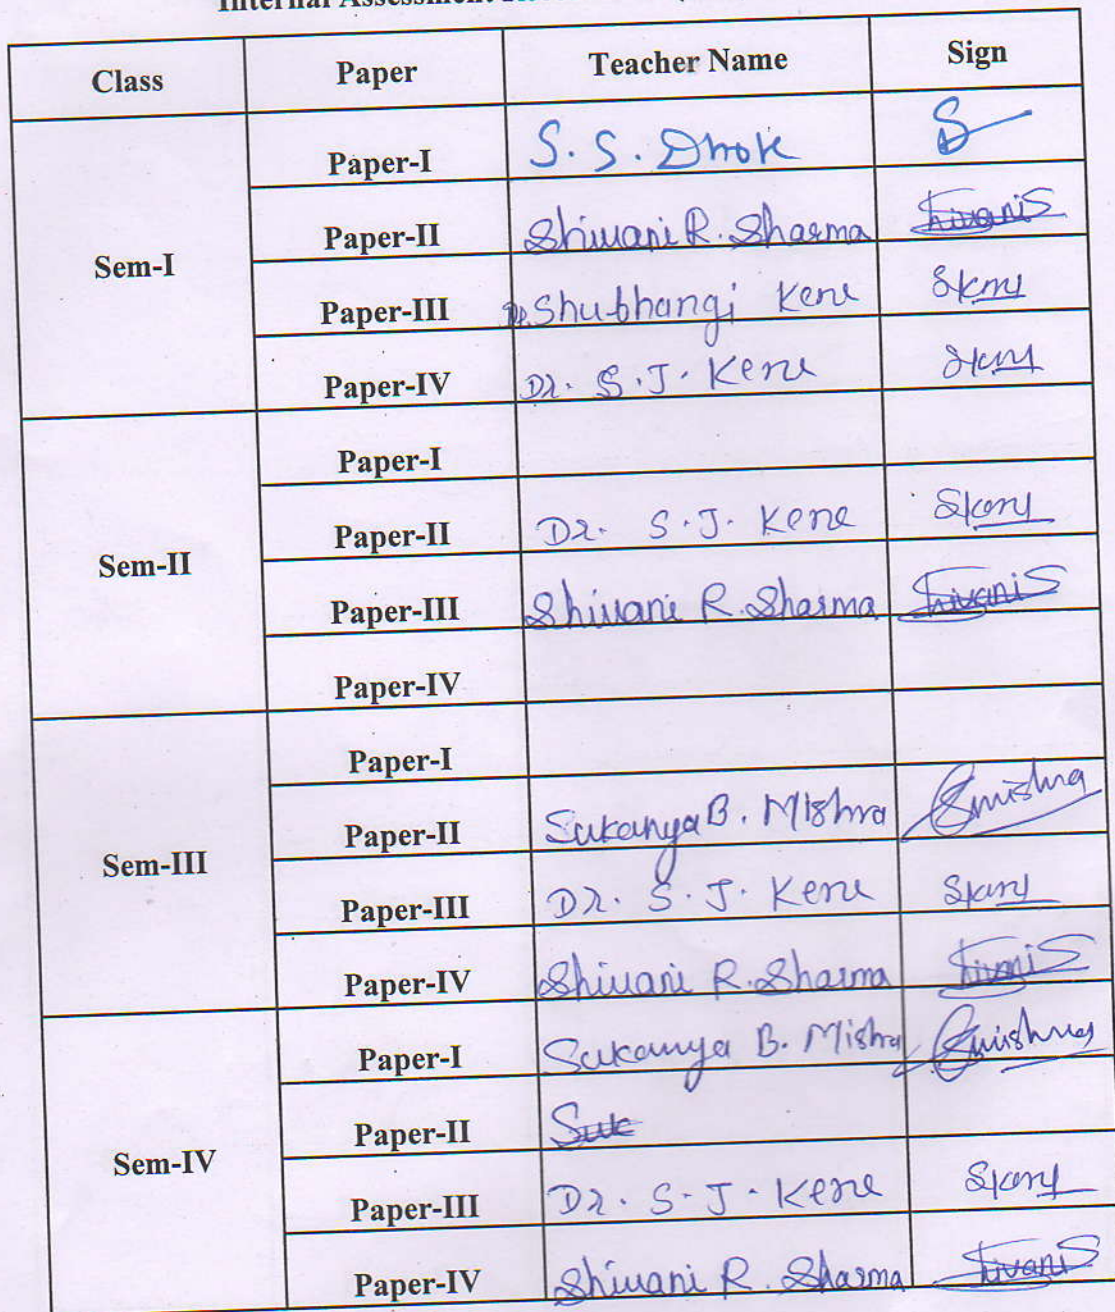 Internal Assessment
Class Paper Teacher Name Sign
Sem-I
Paper-I S. S. Dhok
Paper-II Shivani R. Sharma ShivaniS
Paper-III Dr. Shubhangi Kene SKene
Paper-IV Dr. S. J. Kene SKene
Sem-II
Paper-I
Paper-II Dr. S. J. Kene SKene
Paper-III Shivani R. Sharma ShivaniS
Paper-IV
Sem-III
Paper-I
Paper-II Sukanya B. Mishra Smishra
Paper-III Dr. S. J. Kene SKene
Paper-IV Shivani R. Sharma ShivaniS
Sem-IV
Paper-I Sukanya B. Mishra Smishra
Paper-II Suk
Paper-III Dr. S. J. Kene SKene
Paper-IV Shivani R. Sharma ShivaniS